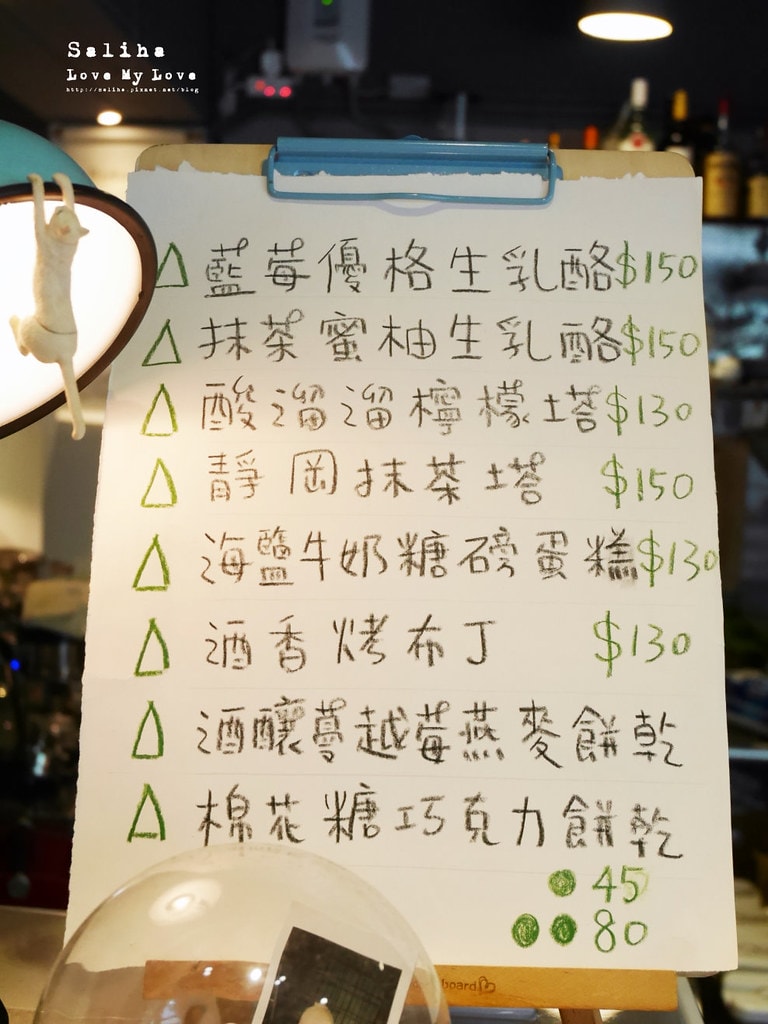 Saliha
Love My Love
http://saliha.pixnet.net/blog
△ 藍莓優格生乳酪$150
△ 抹茶蜜柚生乳酪$150
△ 酸溜溜檸檬塔$130
△ 靜岡抹茶塔 $150
△ 海鹽牛奶糖磅蛋糕$130
△ 酒香烤布丁 $130
△ 酒釀蔓越莓燕麥餅乾
△ 棉花糖巧克力餅乾
● 45
●● 80
board